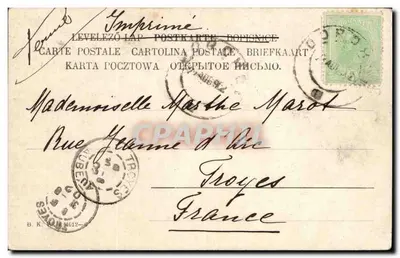 Imprimé
LEVELEZŐ-LAP POSTKARTE DOPISNICE
CARTE POSTALE CARTOLINA POSTALE BRIEFKAART
KARTA POCZTOWA ОТКРЫТОЕ ПИСЬМО
Mademoiselle Marthe Marot
Rue Jeanne d'Arc
Troyes
France
TROYES
AUBE
TROYES
CPAPHIL